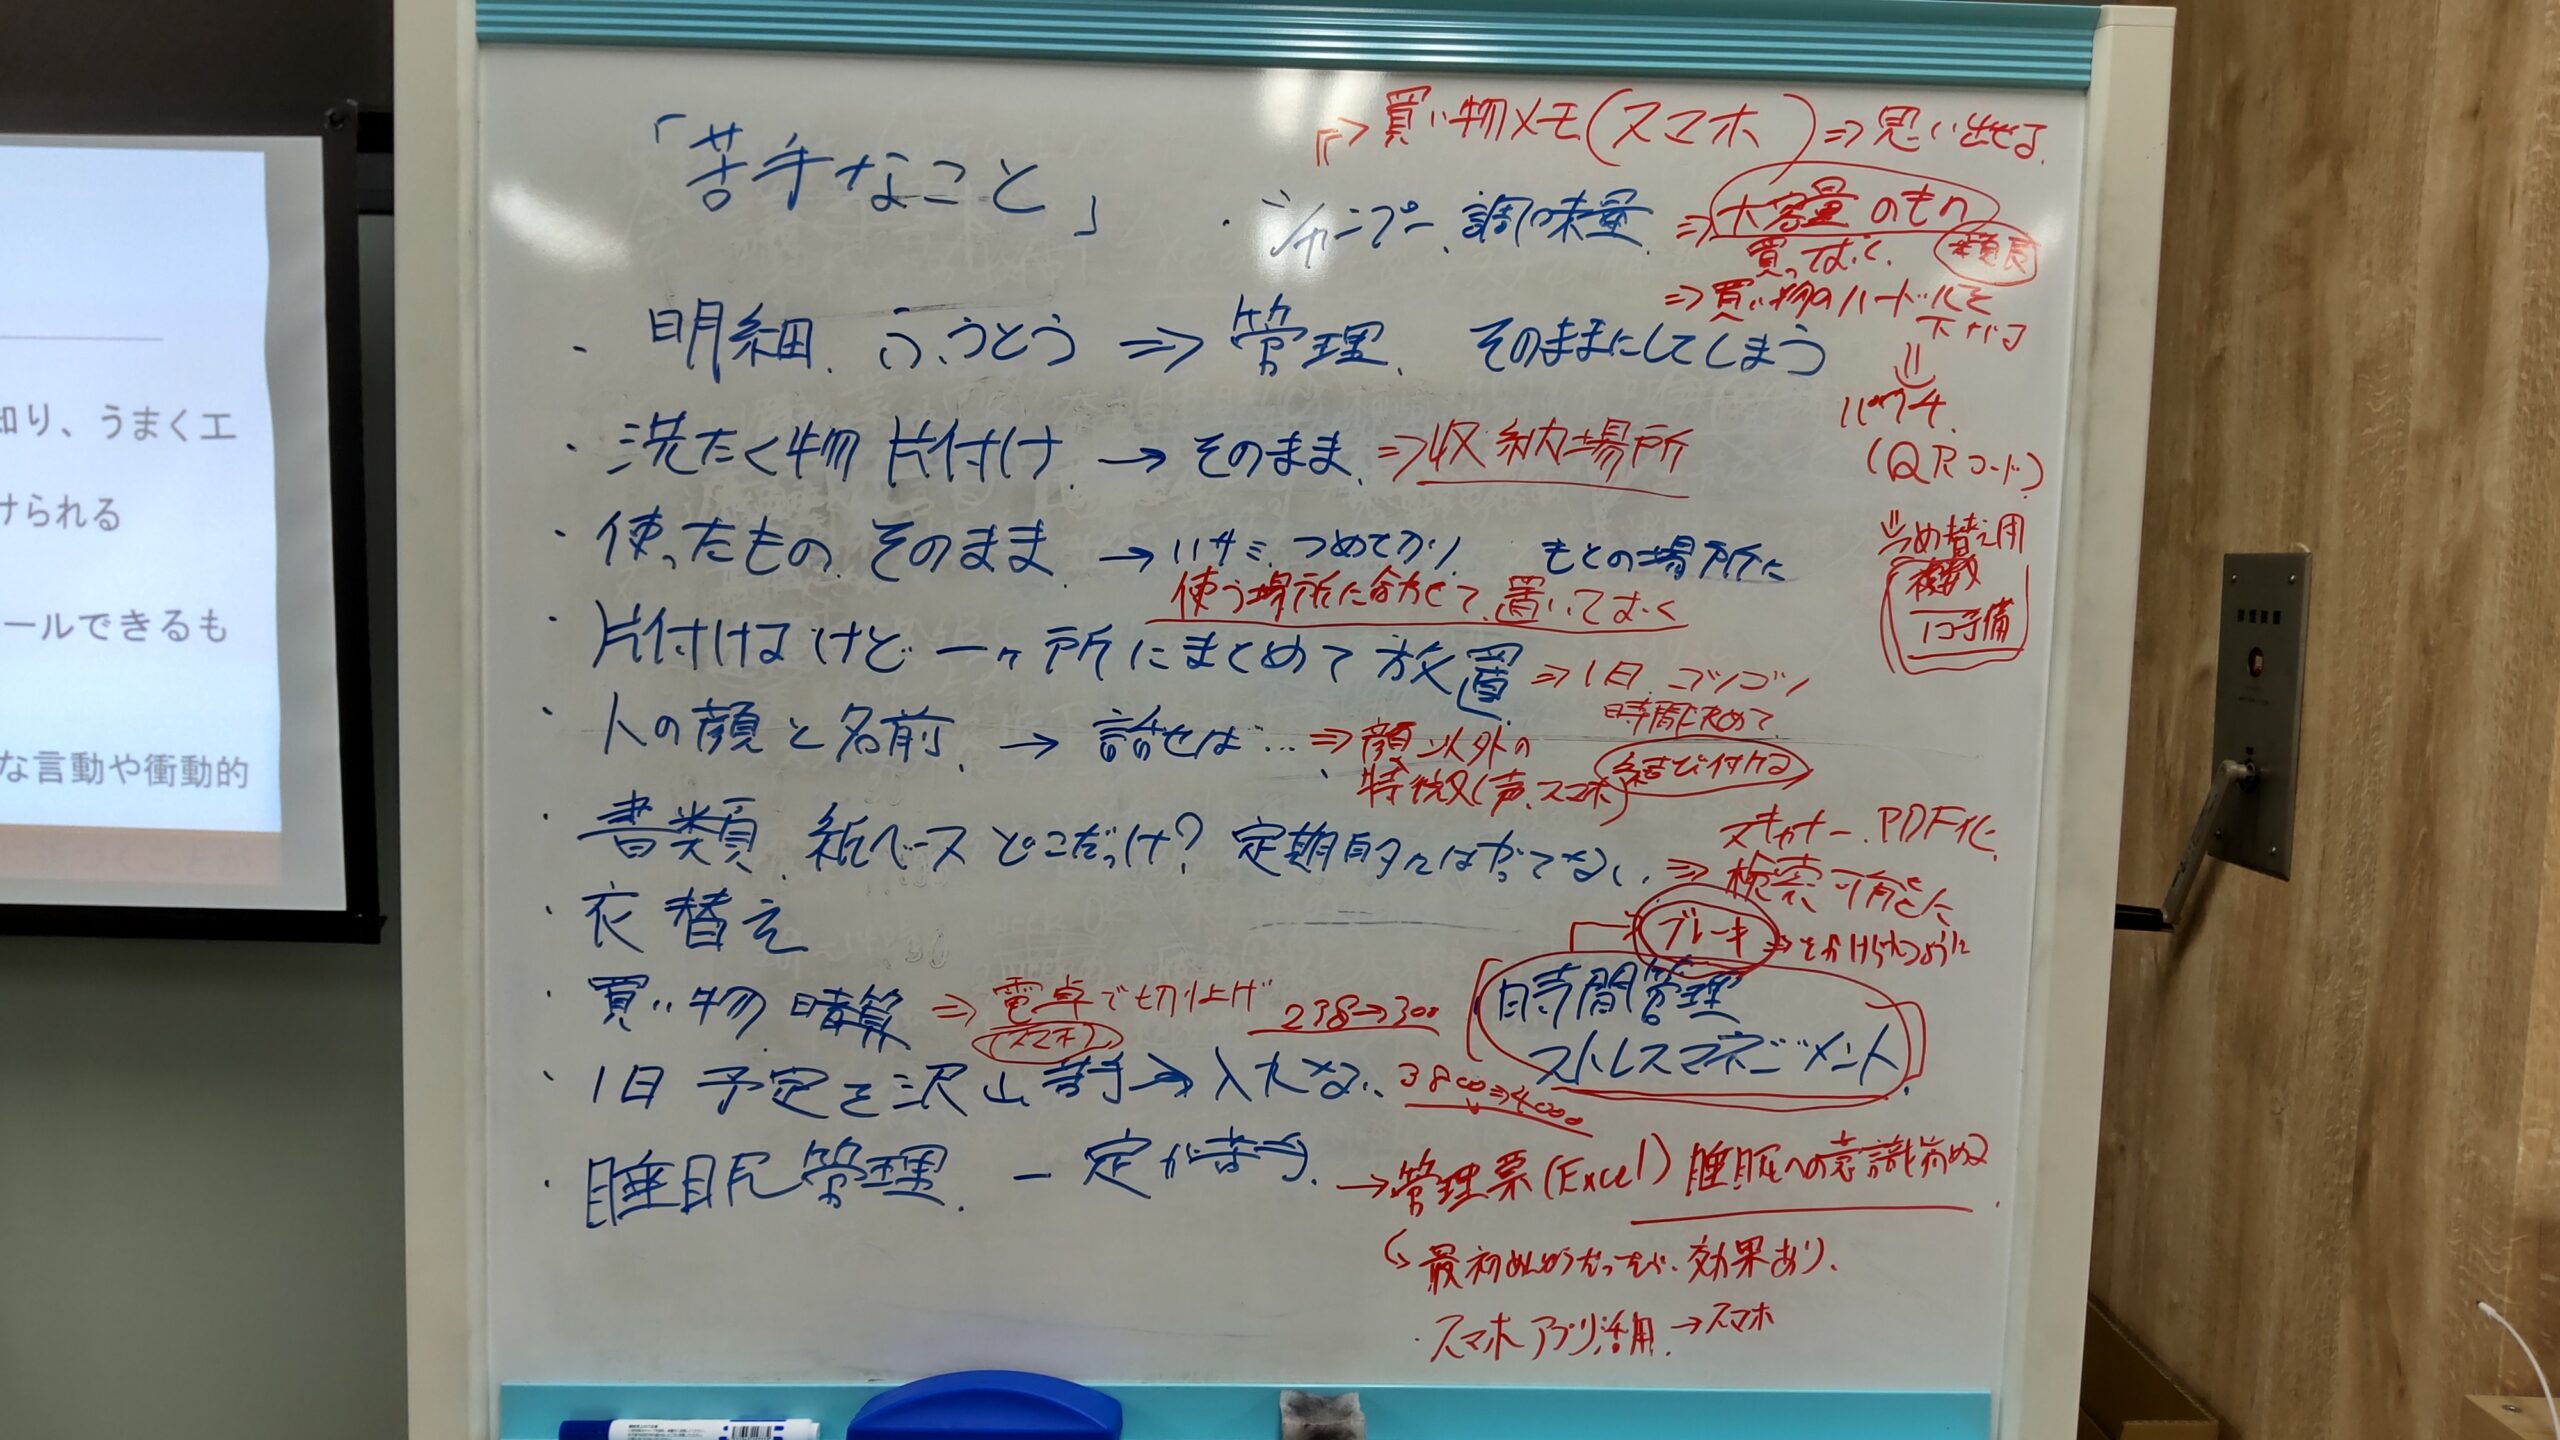 「苦手なこと」
⇒買い物メモ(スマホ)⇒思い出せる
・シャンプー、調味量 ⇒大容量のもの
買っておく。
⇒買い物のハードルを
下げる
・明細、ふうとう ⇒ 管理、そのままにしてしまう
(QRコード)
・洗たく物 片付け → そのまま ⇒収納場所
・使ったもの そのまま → ハサミ、つめきり もとの場所に
使う場所に合わせて、置いておく
つめ替え用
複数
1コ予備
・片付けるけど 一ヶ所にまとめて放置 ⇒1日 コツコツ
時間決めて
・人の顔と名前 → 話せば… ⇒顔以外の
特徴(声、スマホ) 結び付ける
・書類、紙ベース どこだっけ? 定期的には
スキャナー、PDF化
⇒検索可能に
・衣替え
ブレーキ
・買い物 暗算 ⇒電卓で切り上げ 238→300
(スマホ)
時間管理
ストレスマネジメント
・1日 予定を沢山 苦手→入れない 3800⇒4000
・睡眠管理、一定が苦手。→管理票(Excel) 睡眠への意識
最初めんどうだったが、効果あり。
・スマホアプリ活用 →スマホ
知り、うまく工
けられる
ールできるも
な言動や衝動的